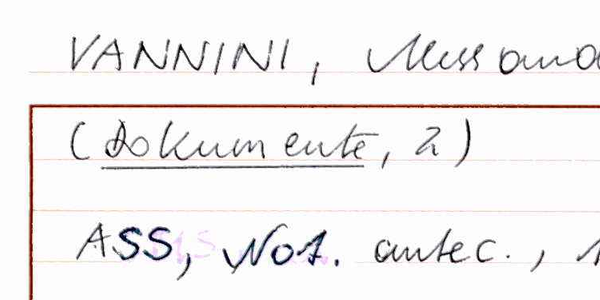 VANNINI, Alessand
(Dokumente, 2)
ASS, Not. antec.,